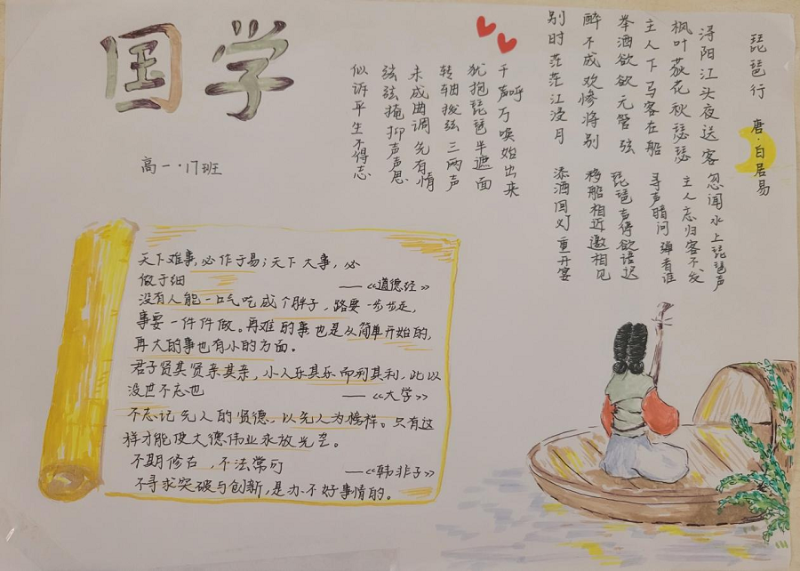 国学
高一·17班
琵琶行 唐·白居易
浔阳江头夜送客
枫叶荻花秋瑟瑟
主人下马客在船
举酒欲欲元管弦
醉不成欢惨将别
别时茫茫江浸月
忽闻水上琵琶声
主人忘归客不发
寻声暗问弹者谁
琵琶声得欲语迟
移船相近邀相见
添酒回灯重开宴
千呼万唤始出来
犹抱琵琶半遮面
转轴拨弦三两声
未成曲调先有情
弦弦掩抑声声思
似诉平生不得志
天下难事,必作于易;天下大事,必
做于细 ——《道德经》
没有人能一口气吃成个胖子,路要一步步走,
事要一件件做。再难的事也是从简单开始的,
再大的事也有小的方面。
君子贤其贤亲其亲,小人乐其乐而利其利,此以
没世不忘也 ——《大学》
不忘记先人的贤德,以先人为榜样。只有这
样才能使大德伟业永放光芒。
不期修古,不法常可 ——《韩非子》
不寻求突破与创新,是办不好事情的。